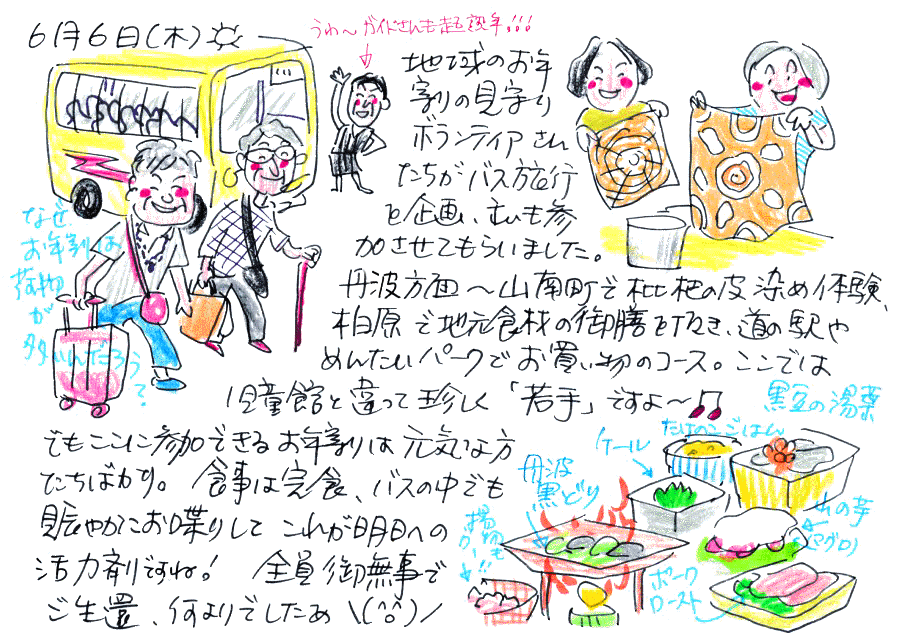 6月6日(木)
うわ〜ガイドさんも超お年!!!
地域のお年
寄りの見守り
ボランティアさん
たちがバス旅行
を企画、私も参
加させてもらいました。
丹波方面〜山南町で枇杷の皮染め体験、
柏原で地元食材の御膳を頂き、道の駅や
めんたいパークでお買い物のコース。ここでは
児童館と違って珍しく「若手」ですよ〜♫
でもここに参加できるお年寄りは元気な方
たちばかり。食事は完食、バスの中でも
賑やかにお喋りしてこれが明日への
活力剤ですね! 全員御無事で
ご生還、何よりでしたぁ \(^o^)/
なぜ
お年寄りは
荷物
が
多いんだろう?
黒豆の湯葉
たけのこごはん
ケール
丹波
黒どり
揚物も
!!
山の芋
(マグロ)
ポーク
ロースト